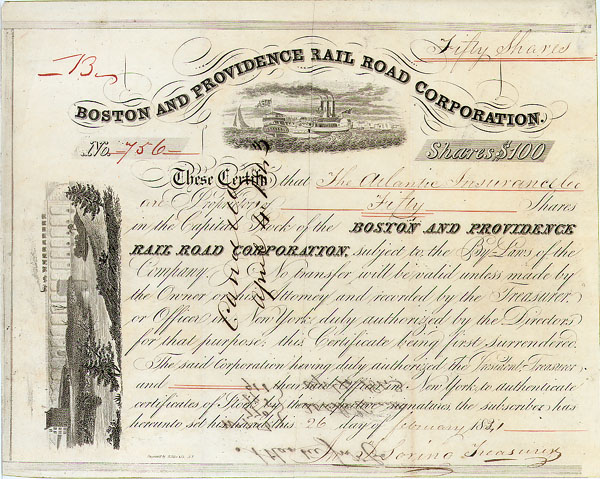 Fifty Shares
B
BOSTON AND PROVIDENCE RAIL ROAD CORPORATION.
No. 756 Shares $100
These Certify that The Atlantic Insurance Co
are Proprietors Fifty Shares
in the Capital Stock of the BOSTON AND PROVIDENCE
RAIL ROAD CORPORATION, subject to the By Laws of the
Company. No transfer will be valid unless made by
the Owner or his Attorney and recorded by the Treasurer,
or Officer in New York duly authorized by the Directors
for that purpose: this Certificate being first surrendered.
The said Corporation having duly authorized the President Treasurer
and New York, to authenticate
certificates of Stock by their signatures, the subscriber has
hereunto set his hand this 26 day of February 18
Loring Treasurer
Cancelled
April